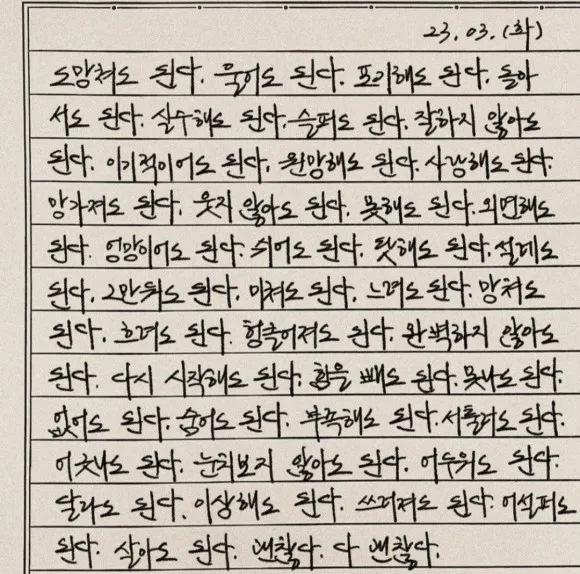 23.03.(화)
도망쳐도 된다. 울어도 된다. 포기해도 된다. 돌아
서도 된다. 실수해도 된다. 슬퍼도 된다. 잘하지 않아도
된다. 이기적이어도 된다. 원망해도 된다. 사랑해도 된다.
망가져도 된다. 웃지 않아도 된다. 못해도 된다. 외면해도
된다. 엉망이어도 된다. 쉬어도 된다. 탓해도 된다. 설레도
된다. 그만둬도 된다. 미쳐도 된다. 느려도 된다. 망쳐도
된다. 흐려도 된다. 헝클어져도 된다. 완벽하지 않아도
된다. 다시 시작해도 된다. 힘을 빼도 된다. 못나도 된다.
없어도 된다. 숨어도 된다. 부족해도 된다. 서툴러도 된다.
어긋나도 된다. 눈치보지 않아도 된다. 어두워도 된다.
달라도 된다. 이상해도 된다. 쓰러져도 된다. 어설퍼도
된다. 살아도 된다. 괜찮다. 다 괜찮다.